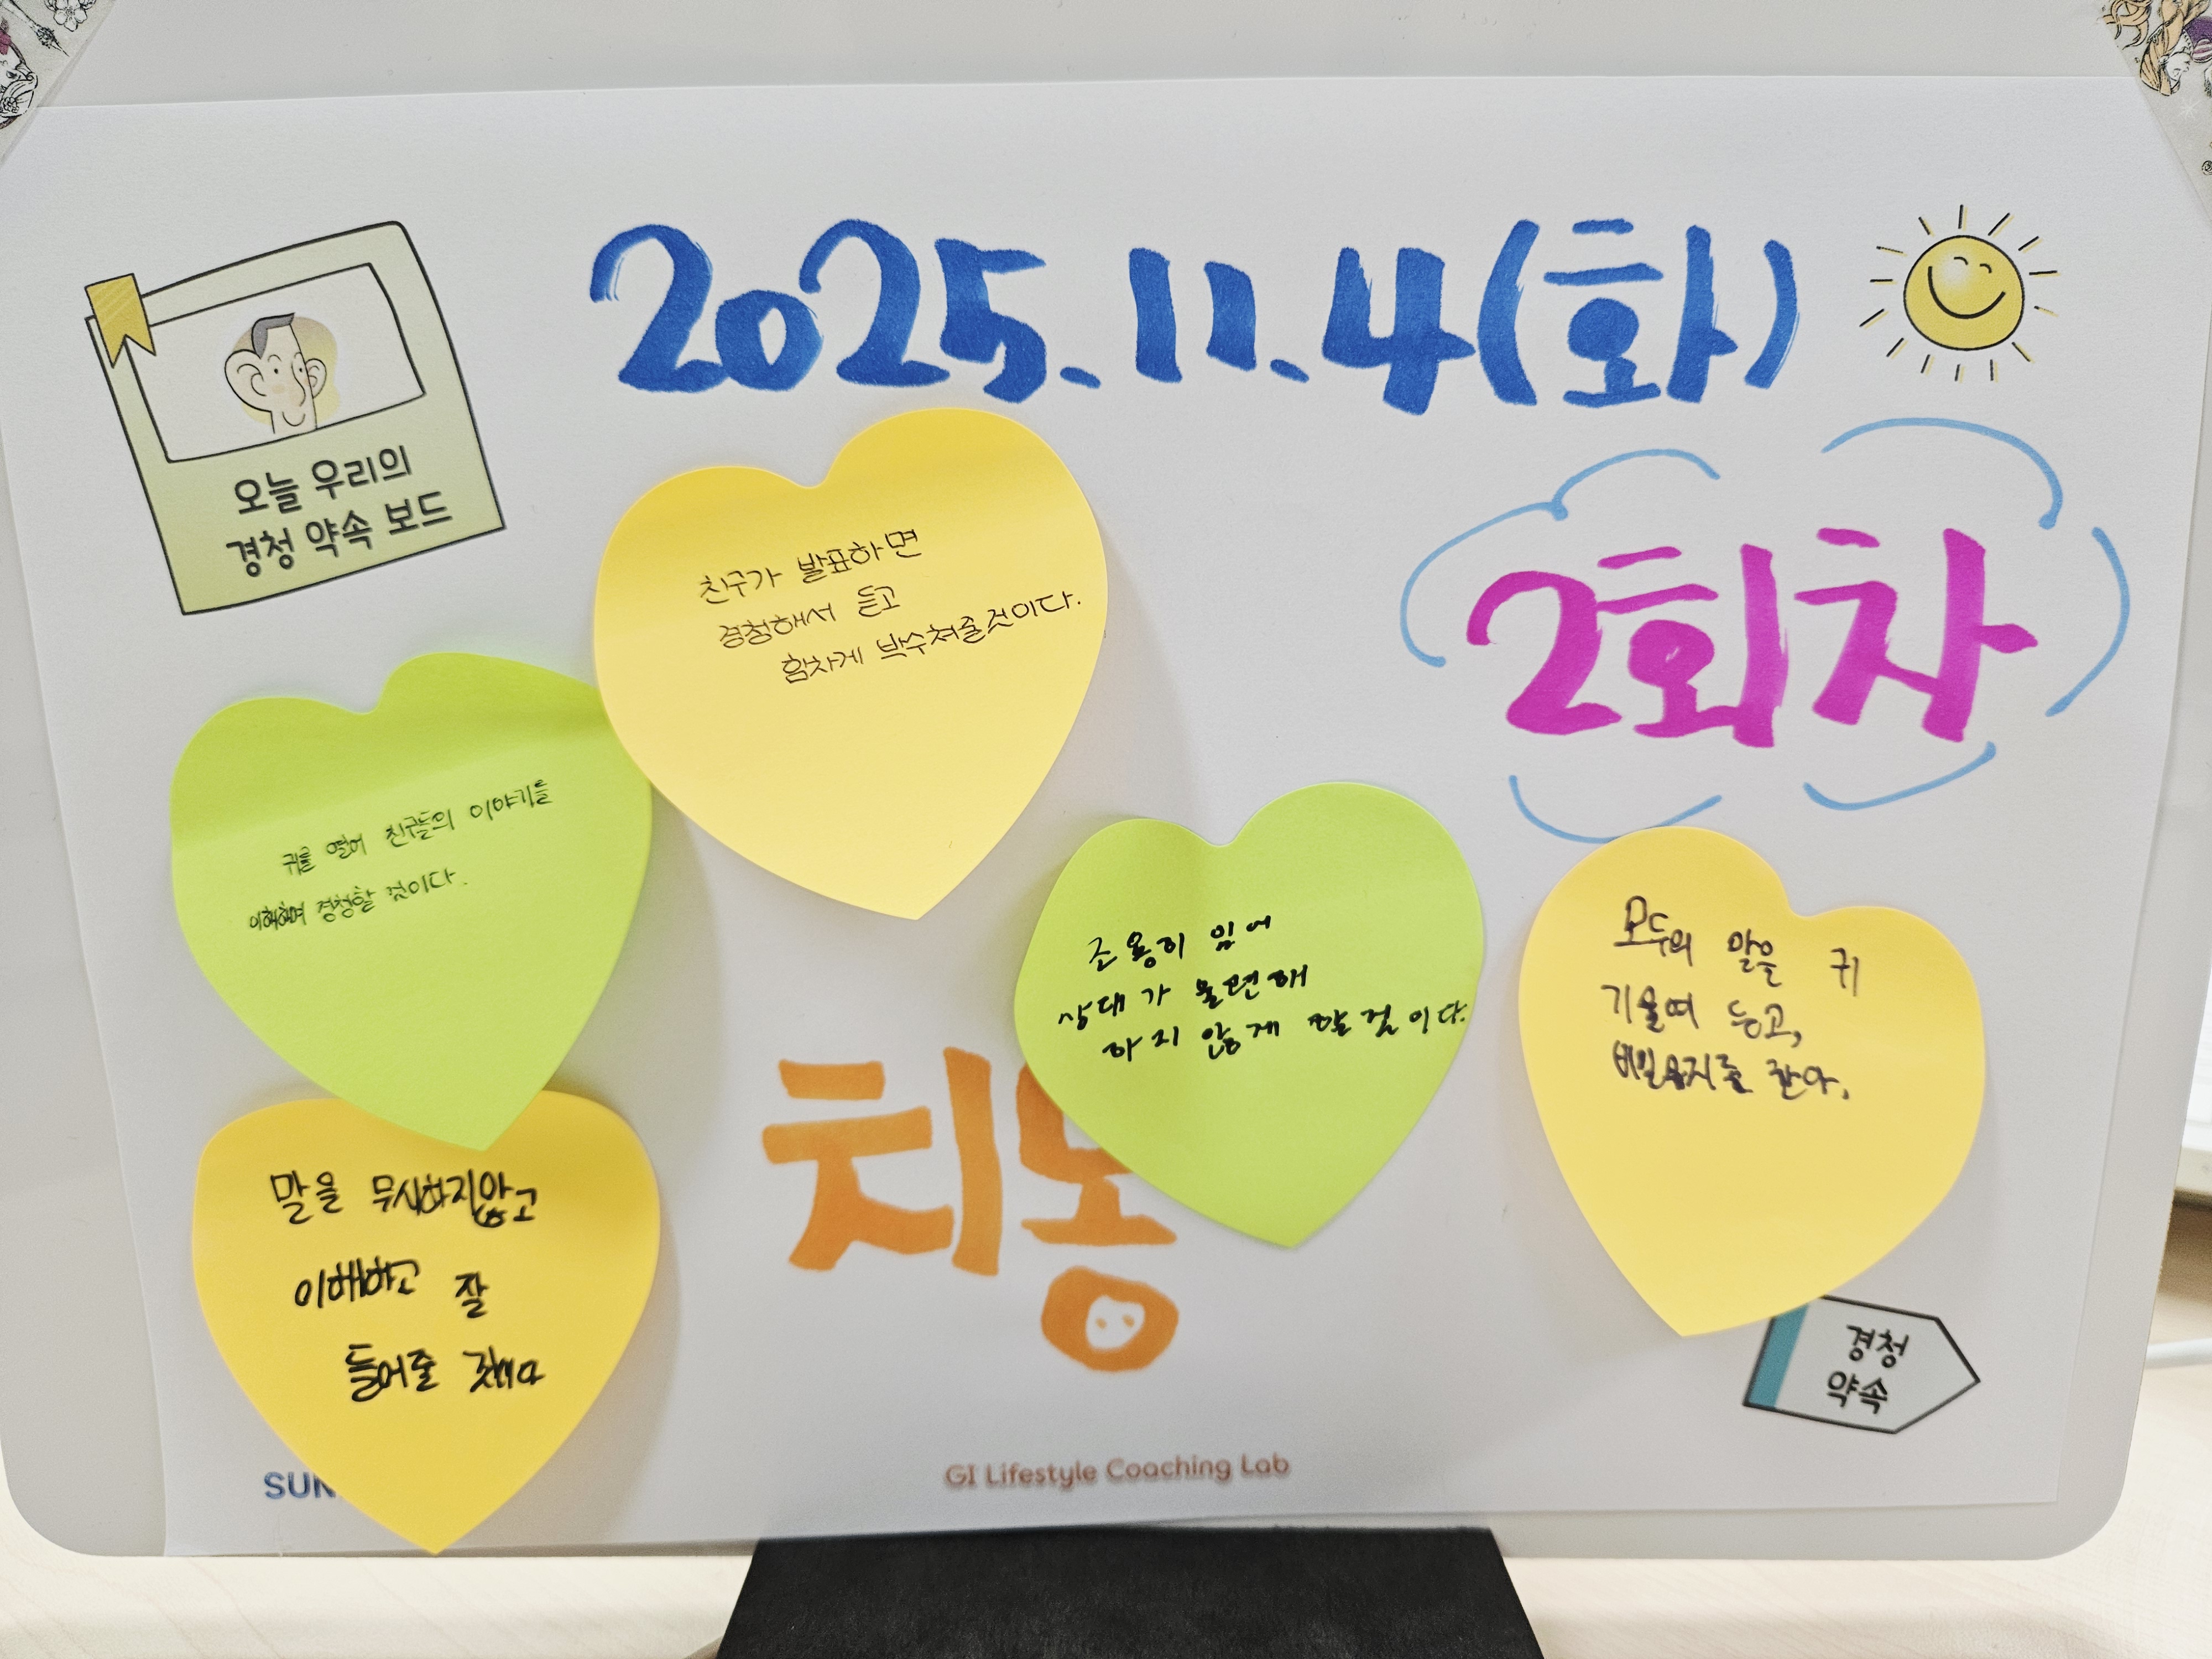 2025.11.4(화)
오늘 우리의
경청 약속 보드
2회차
친구가 발표하면
경청해서 듣고
힘차게 박수쳐줄것이다.
귀를 열어 친구들의 이야기를
이해하며 경청할 것이다.
조용히 있어
상대가 불편해
하지 않게 할 것이다.
모두의 말을 귀
기울여 듣고,
비밀유지를 한다.
말을 무시하지않고
이해하고 잘
들어줄
치
경청
약속
GI Lifestyle Coaching Lab
SUN